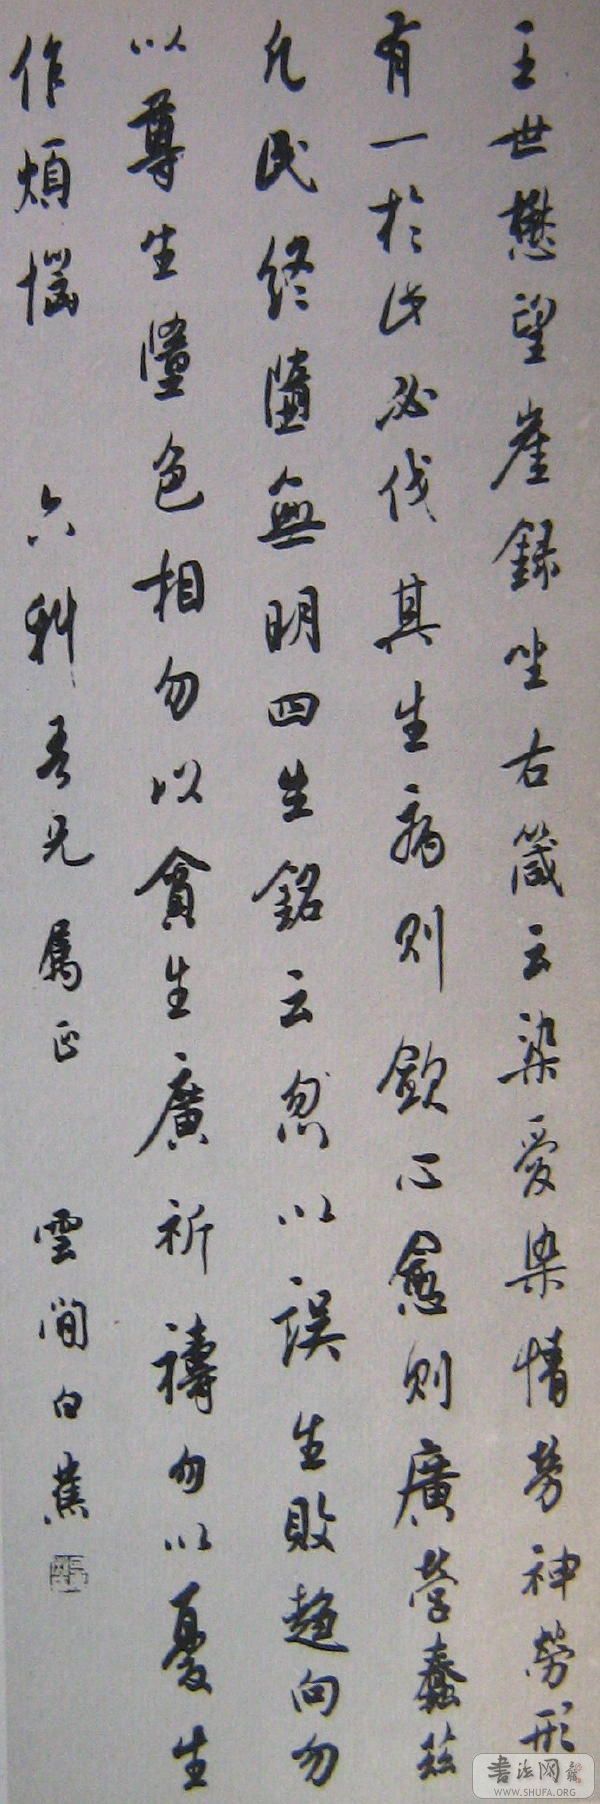 王世懋望崖録坐右箴云染愛染情勞神勞形
有一於此必伐其生病則歛心愈則廣營蠢茲
凡民終墮無明四生銘云忽以誤生敗趣向勿
以尊生墮色相勿以貪生廣祈禱勿以憂生
作煩惱 六科吾兄属正 雲間白蕉
書法网
WWW.SHUFA.ORG